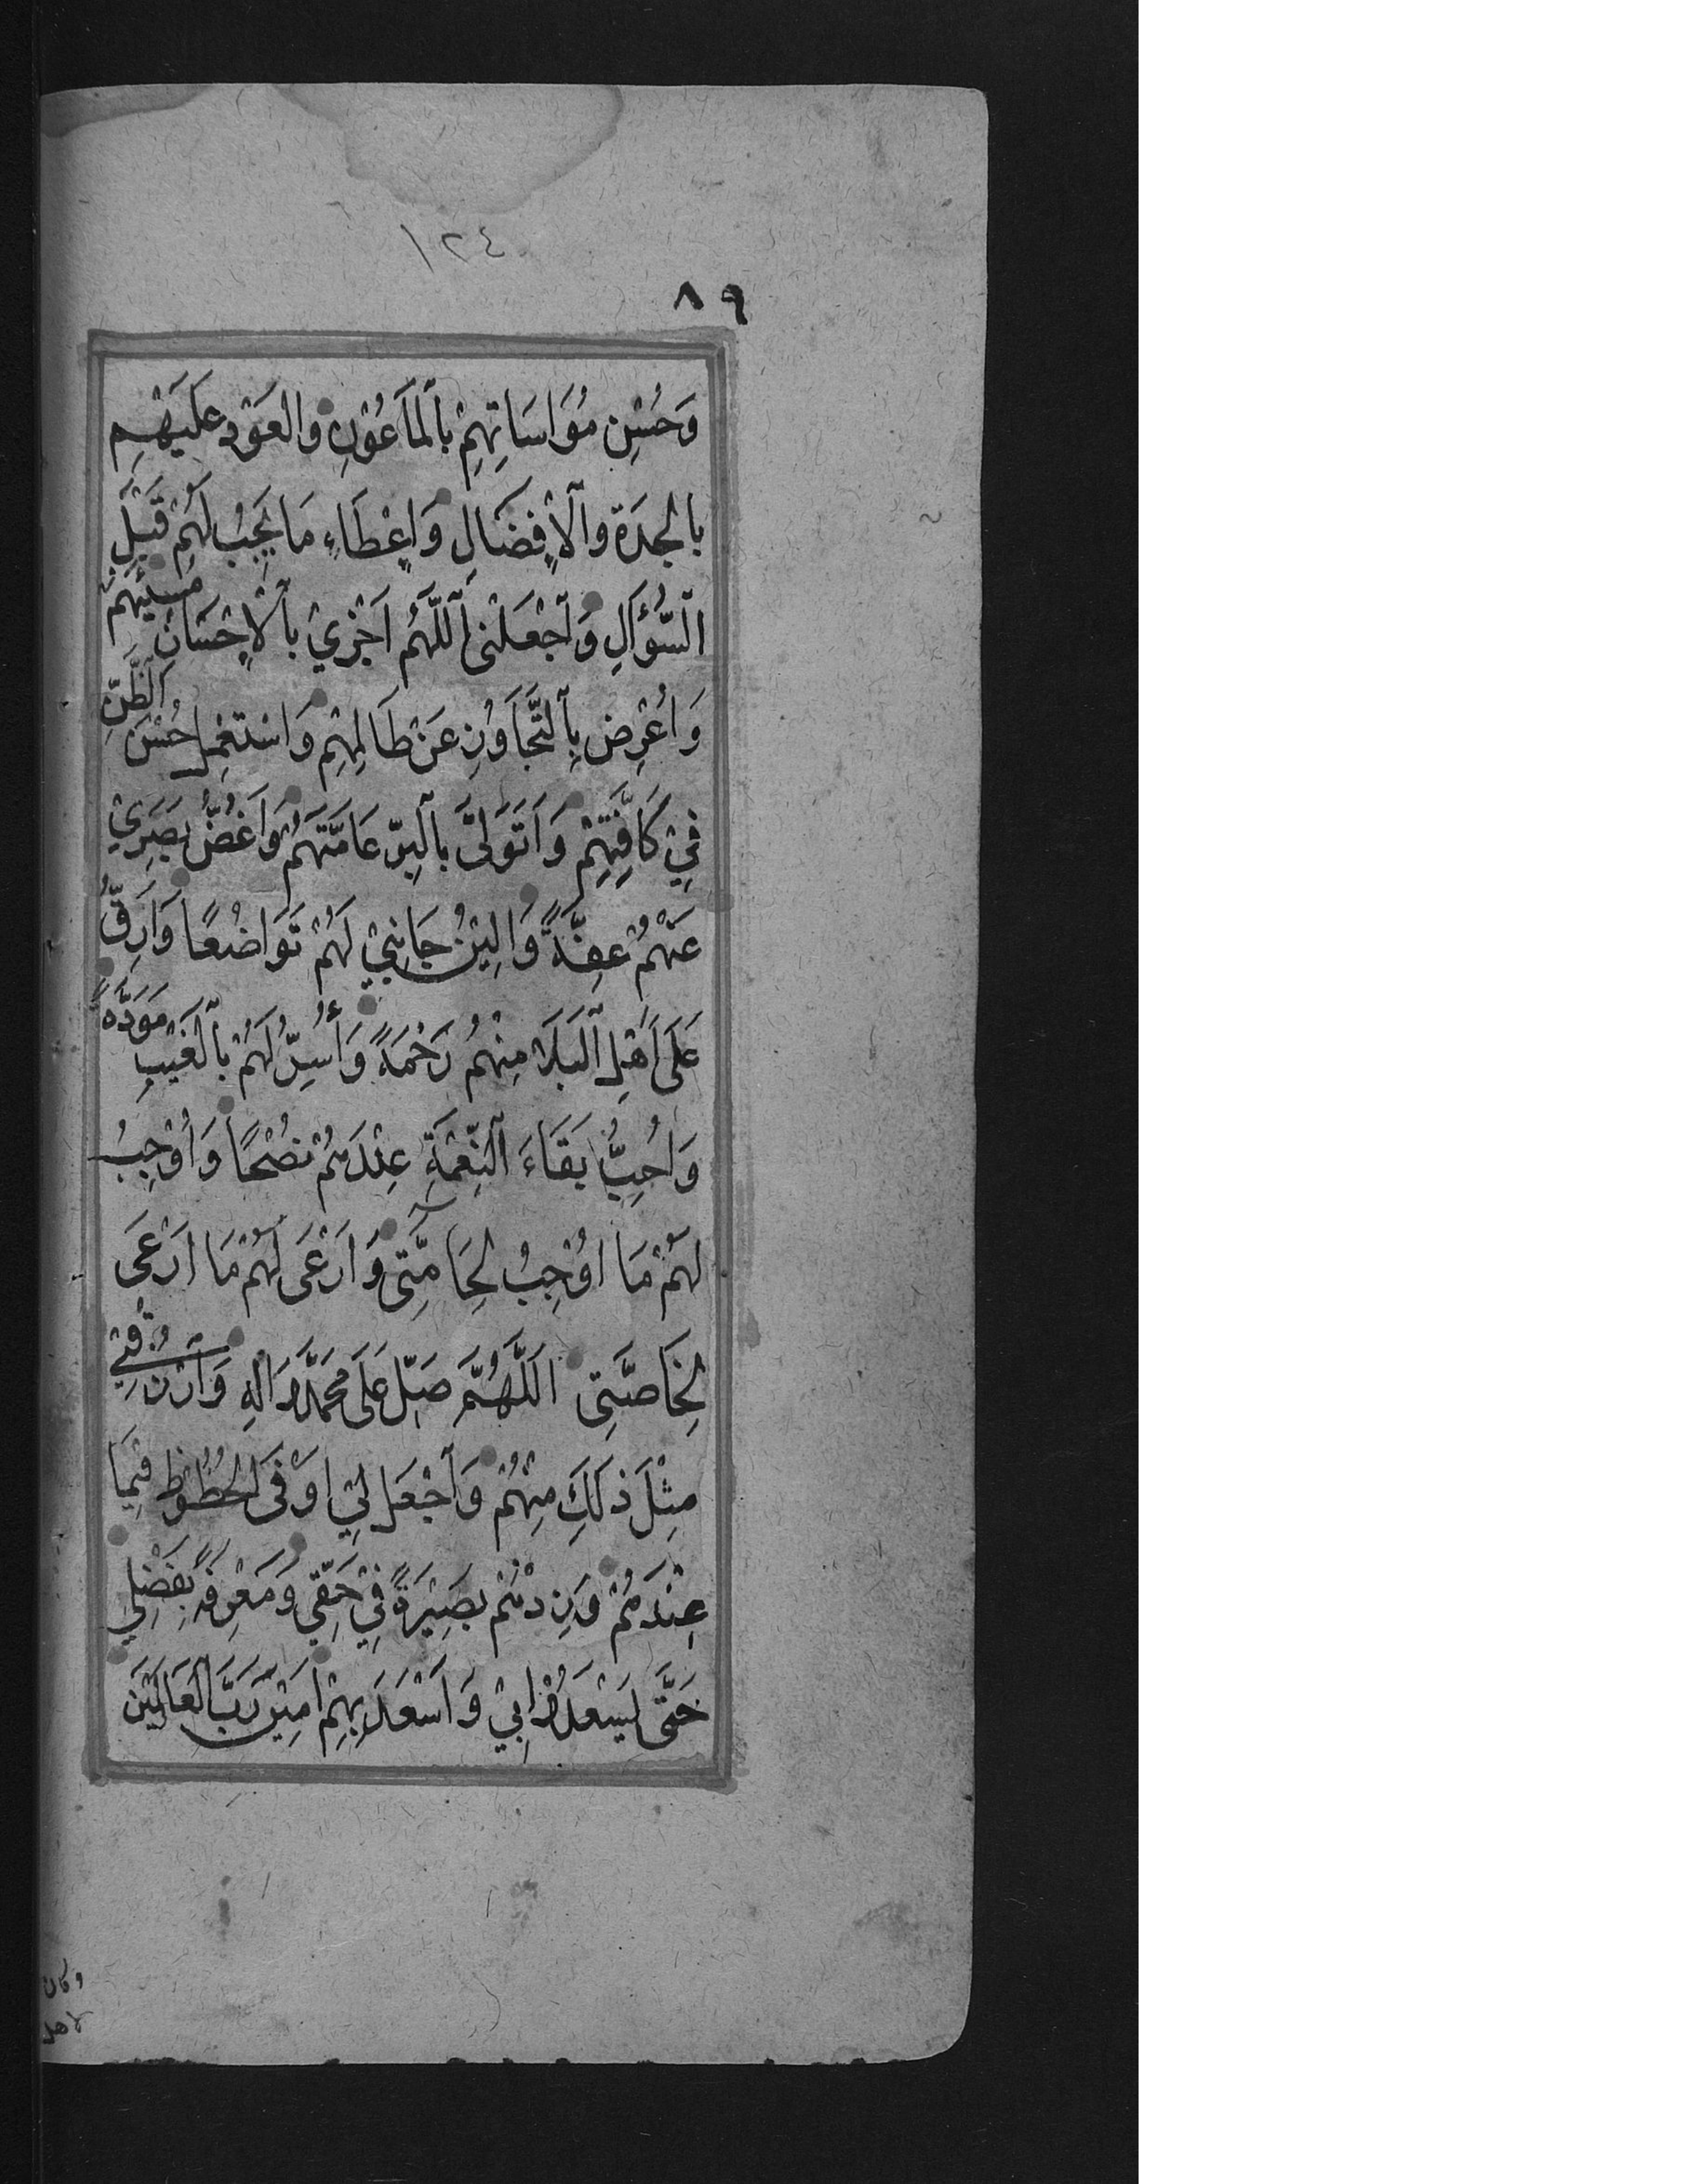 ١٢٤
٨٩
وَحُسْنِ مُوَاسَاتِهِمْ بِٱلْمَاعُوْنِ وَالعَوْدِ عَلَيْهِمْ
بِالْجِدَةِ وَٱلْاِفْضَالِ وَاِعْطَاءِ مَا يَجِبُ لَهُمْ قَبْلَ
ٱلسُّؤَالِ وَٱجْعَلْنِى ٱللّٰهُمَّ اَجْزِيْ بِٱلْاِحْسَانِ مُسِيْئَهُمْ
وَاُعْرِضُ بِٱلتَّجَاوُزِ عَنْ ظَالِمِهِمْ وَاَسْتَعْمِلُ حُسْنَ ٱلظَّنِّ
فِيْ كَافَّتِهِمْ وَاَتَوَلَّى بِٱلْبِرِّ عَامَّتَهُمْ وَاَغُضُّ بَصَرِيْ
عَنْهُمْ عِفَّةً وَاُلِيْنُ جَانِبِيْ لَهُمْ تَوَاضُعًا وَاَرِقُّ
عَلَى اَهْلِ ٱلْبَلَاءِ مِنْهُمْ رَحْمَةً وَأُسِرُّ لَهُمْ بِٱلْغَيْبِ مَوَدَّةً
وَاُحِبُّ بَقَاءَ ٱلنِّعْمَةِ عِنْدَهُمْ نُصْحًا وَاُوْجِبُ
لَهُمْ مَا اُوْجِبُ لِحَامَّتِى وَاَرْعَى لَهُمْ مَا اَرْعَى
لِخَاصَّتِى اَللّٰهُمَّ صَلِّ عَلَى مُحَمَّدٍ وَاٰلِهِ وَٱرْزُقْنِيْ
مِثْلَ ذٰلِكَ مِنْهُمْ وَٱجْعَلْ لِيْ اَوْفَى ٱلْحُظُوْظِ فِيْمَا
عِنْدَهُمْ وَزِدْهُمْ بَصِيْرَةً فِيْ حَقِّيْ وَمَعْرِفَةً بِفَضْلِيْ
حَتَّى يَسْعَدُوْا بِيْ وَاَسْعَدَ بِهِمْ اٰمِيْنَ رَبَّ ٱلْعَالَمِيْنَ
وكان
لاهل